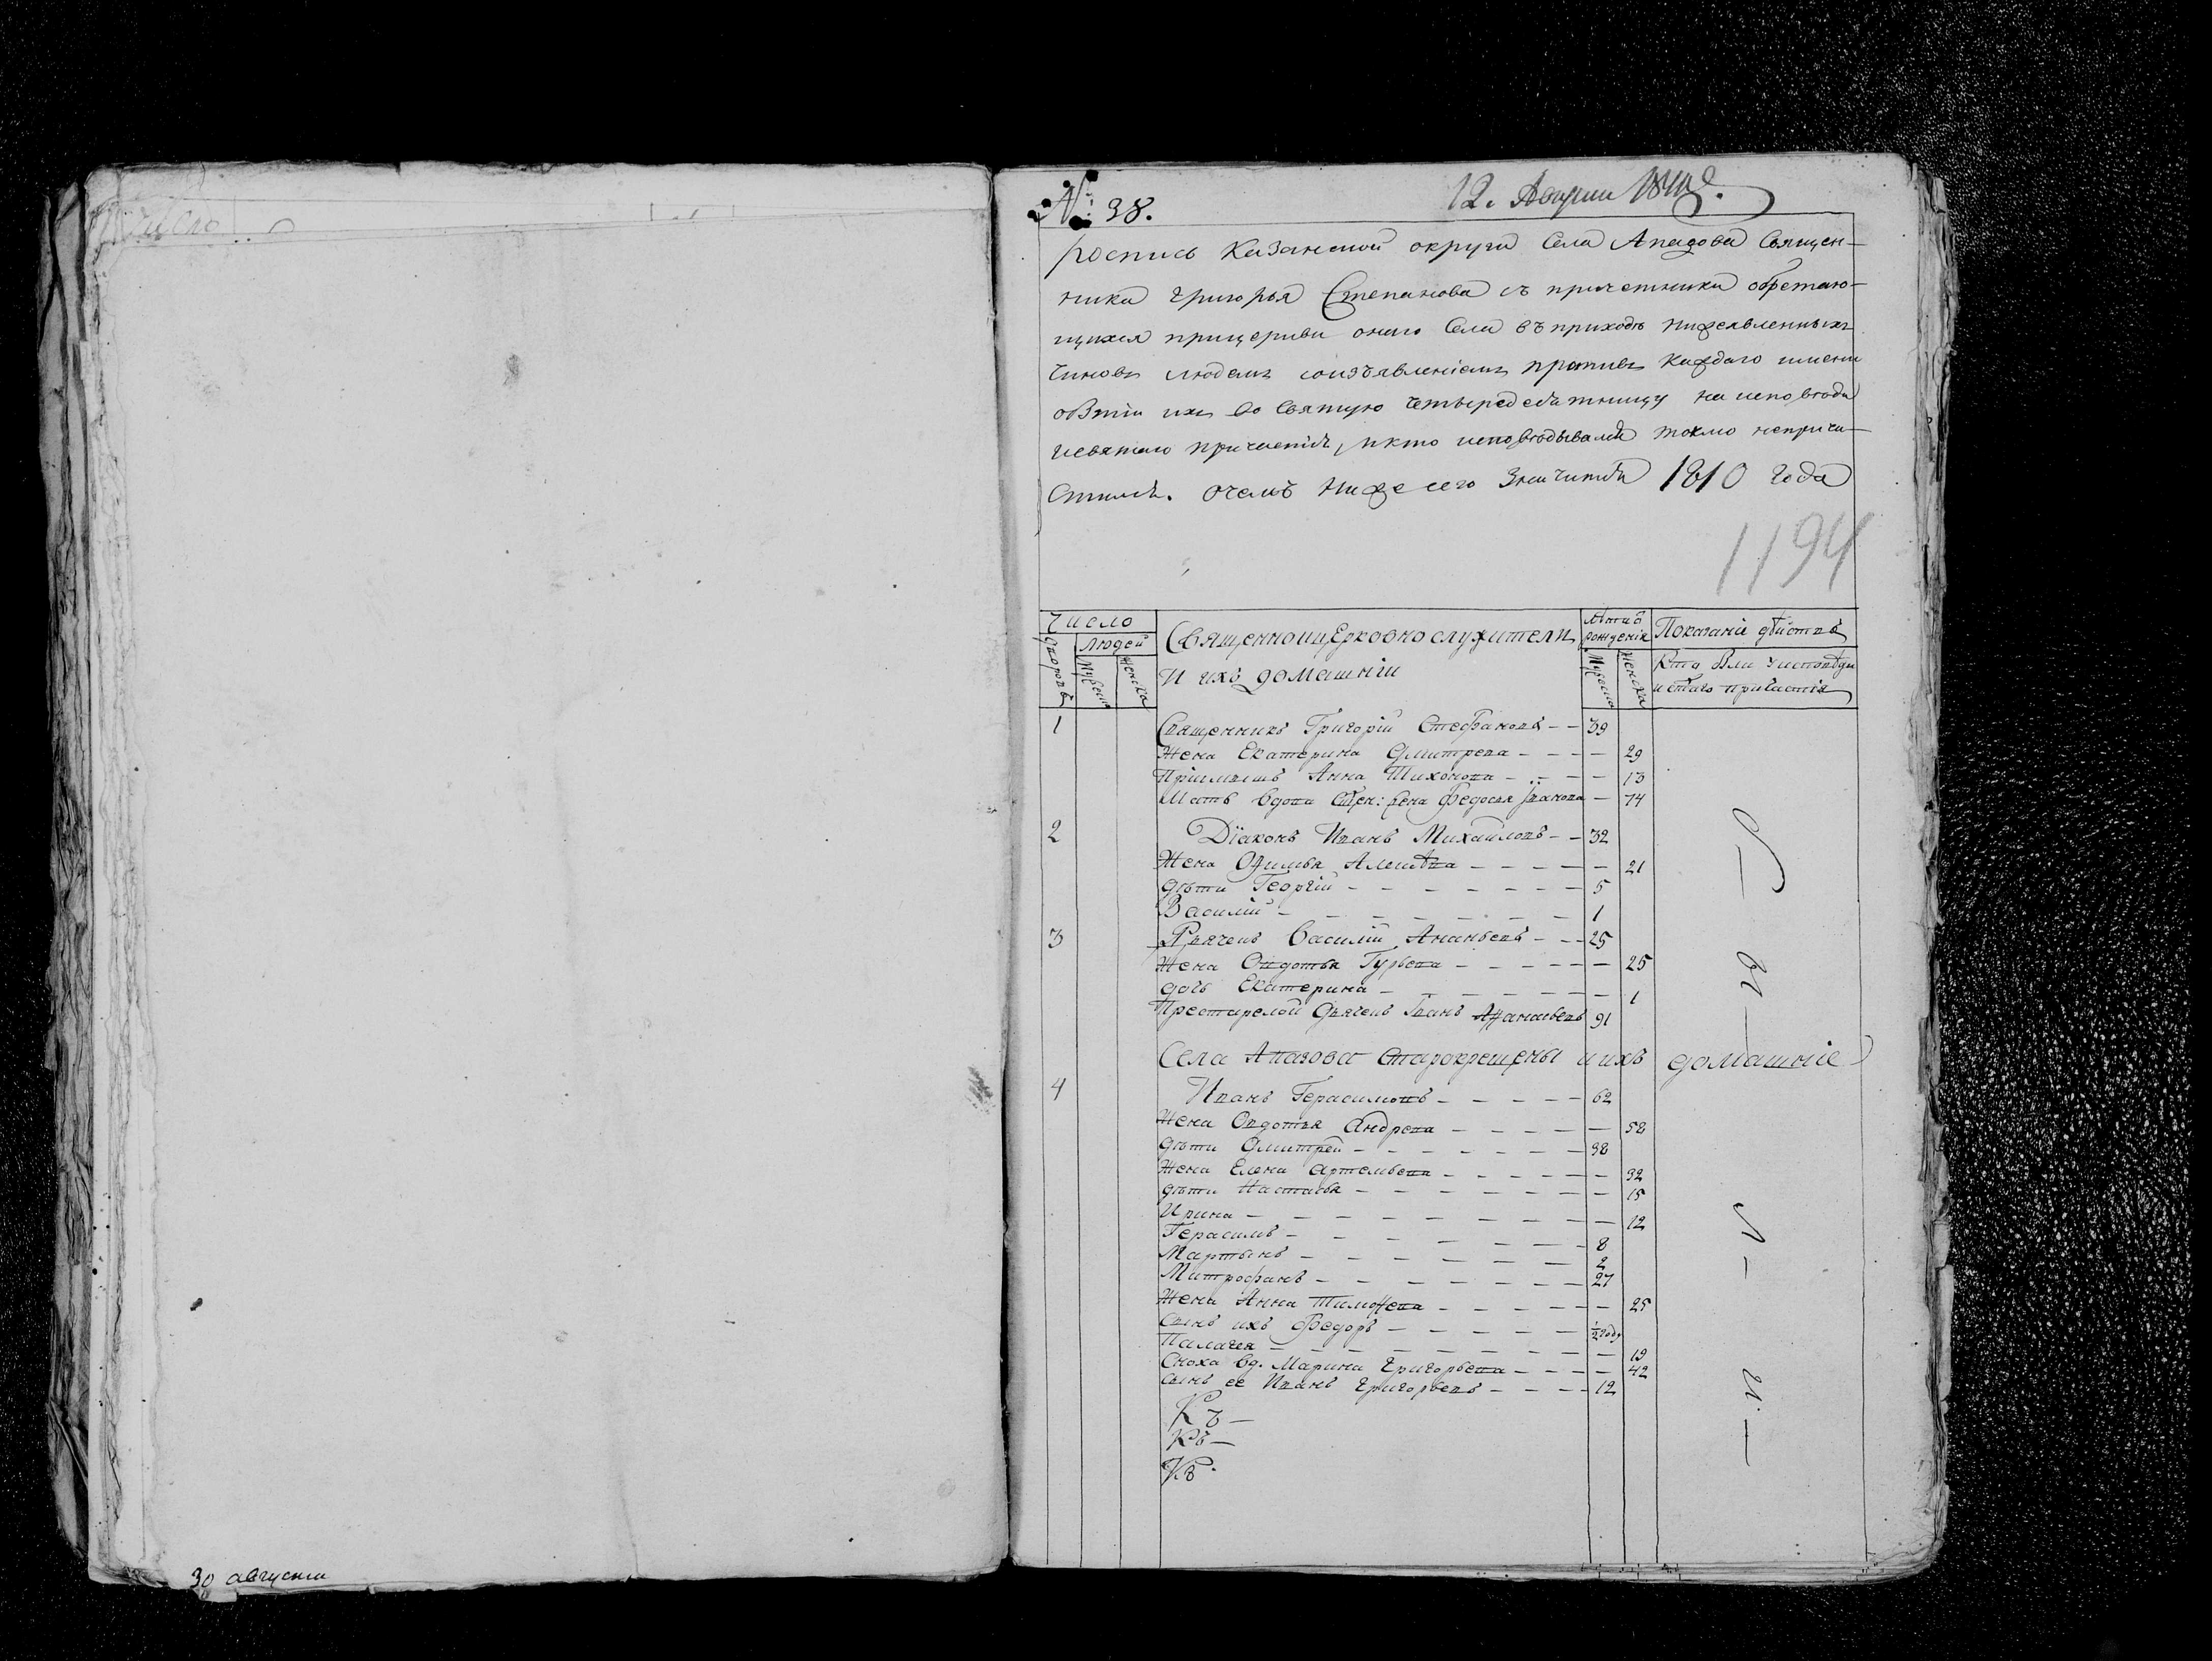 № 38.
12. 1810
Роспись Казанской округи Села Апазова Священ-
ника Григорья Степанова съ причетники обретаю-
щихся прицеркви онаго Села въ приходѣ нижеявленныхъ
чиновъ людемъ соизъявленіемъ противъ каждаго имени
о бытіи ихъ во Святую четыредесятницу на исповѣди
исвятаго причастія, икто исповѣдывался токмо неприча-
стился. Очемъ ниже сего значится 1810 года
1194
Число
Людей
Дворовъ
Мужеска
Женска
Священноицерковнослужители
И ихъ домашніи
Лѣтиѣ рожденія
Мужеска
Женска
Показаніе дѣйствъ
Кто былъ уисповѣди
истаго причастія
1 Священникъ Григорій Стефановъ - - 39
Жена Екатерина Дмитрева - - - - 29
Пріимышъ Анна Тихонова - - - - 13
Мать вдова Свщен: жена Федосья Іванова - 74
2 Дїаконъ Иванъ Михайловъ - - 32
Жена Офимья Алексѣева - - - - - 21
дѣти Георгій - - - - - - - 5
Василій - - - - - - - 1
3 Дьячекъ Василій Ананьевъ - - - 25
Жена Овдотья Гурьева - - - - - - 25
дочь Екатерина - - - - - - - 1
Престарелой Дьячекъ Іванъ Афанасьевъ 91
Села Апазова Старокрещены и ихъ домашніе
4 Иванъ Герасимовъ - - - - - 62
Жена Овдотья Андрева - - - - - 58
дѣти Дмитрей - - - - - - - 38
Жена Елена Артемьева - - - - - - 32
дѣти Настасья - - - - - - - 15
Ирина - - - - - - - - - 12
Герасимъ - - - - - - - - 8
Мартынъ - - - - - - - 2
Митрофанъ - - - - - - - 27
Жена Анна Тимофева - - - - - - 25
Сынъ ихъ Федоръ - - - - - - 1/2 году
Палагея - - - - - - - - 19
Сноха вд. Марина Григорьева - - - - 42
Сынъ ее Иванъ Григорьевъ - - - - 12
Къ -
Къ -
Къ.
30 августа